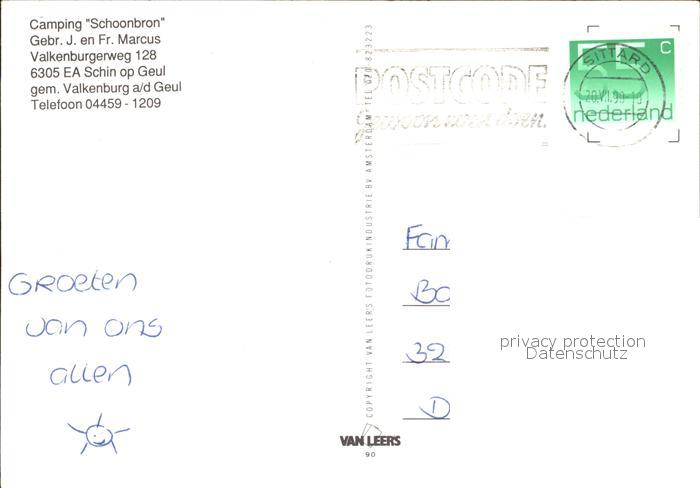 Camping "Schoonbron"
Gebr. J. en Fr. Marcus
Valkenburgerweg 128
6305 EA Schin op Geul
gem. Valkenburg a/d Geul
Telefoon 04459 - 1209
POSTCODE
gewoon even doen.
SITTARD
20.VII.90-10
C
nederland
COPYRIGHT VAN LEER'S FOTODRUKINDUSTRIE BV AMSTERDAM TEL 020-823223
Groeten
van ons
allen
Fam
Bo
32
D
privacy protection
Datenschutz
VAN LEERS
90